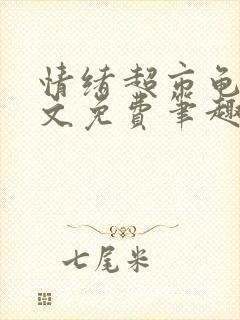 情绪超市龟
文免费笔趣
七尾米